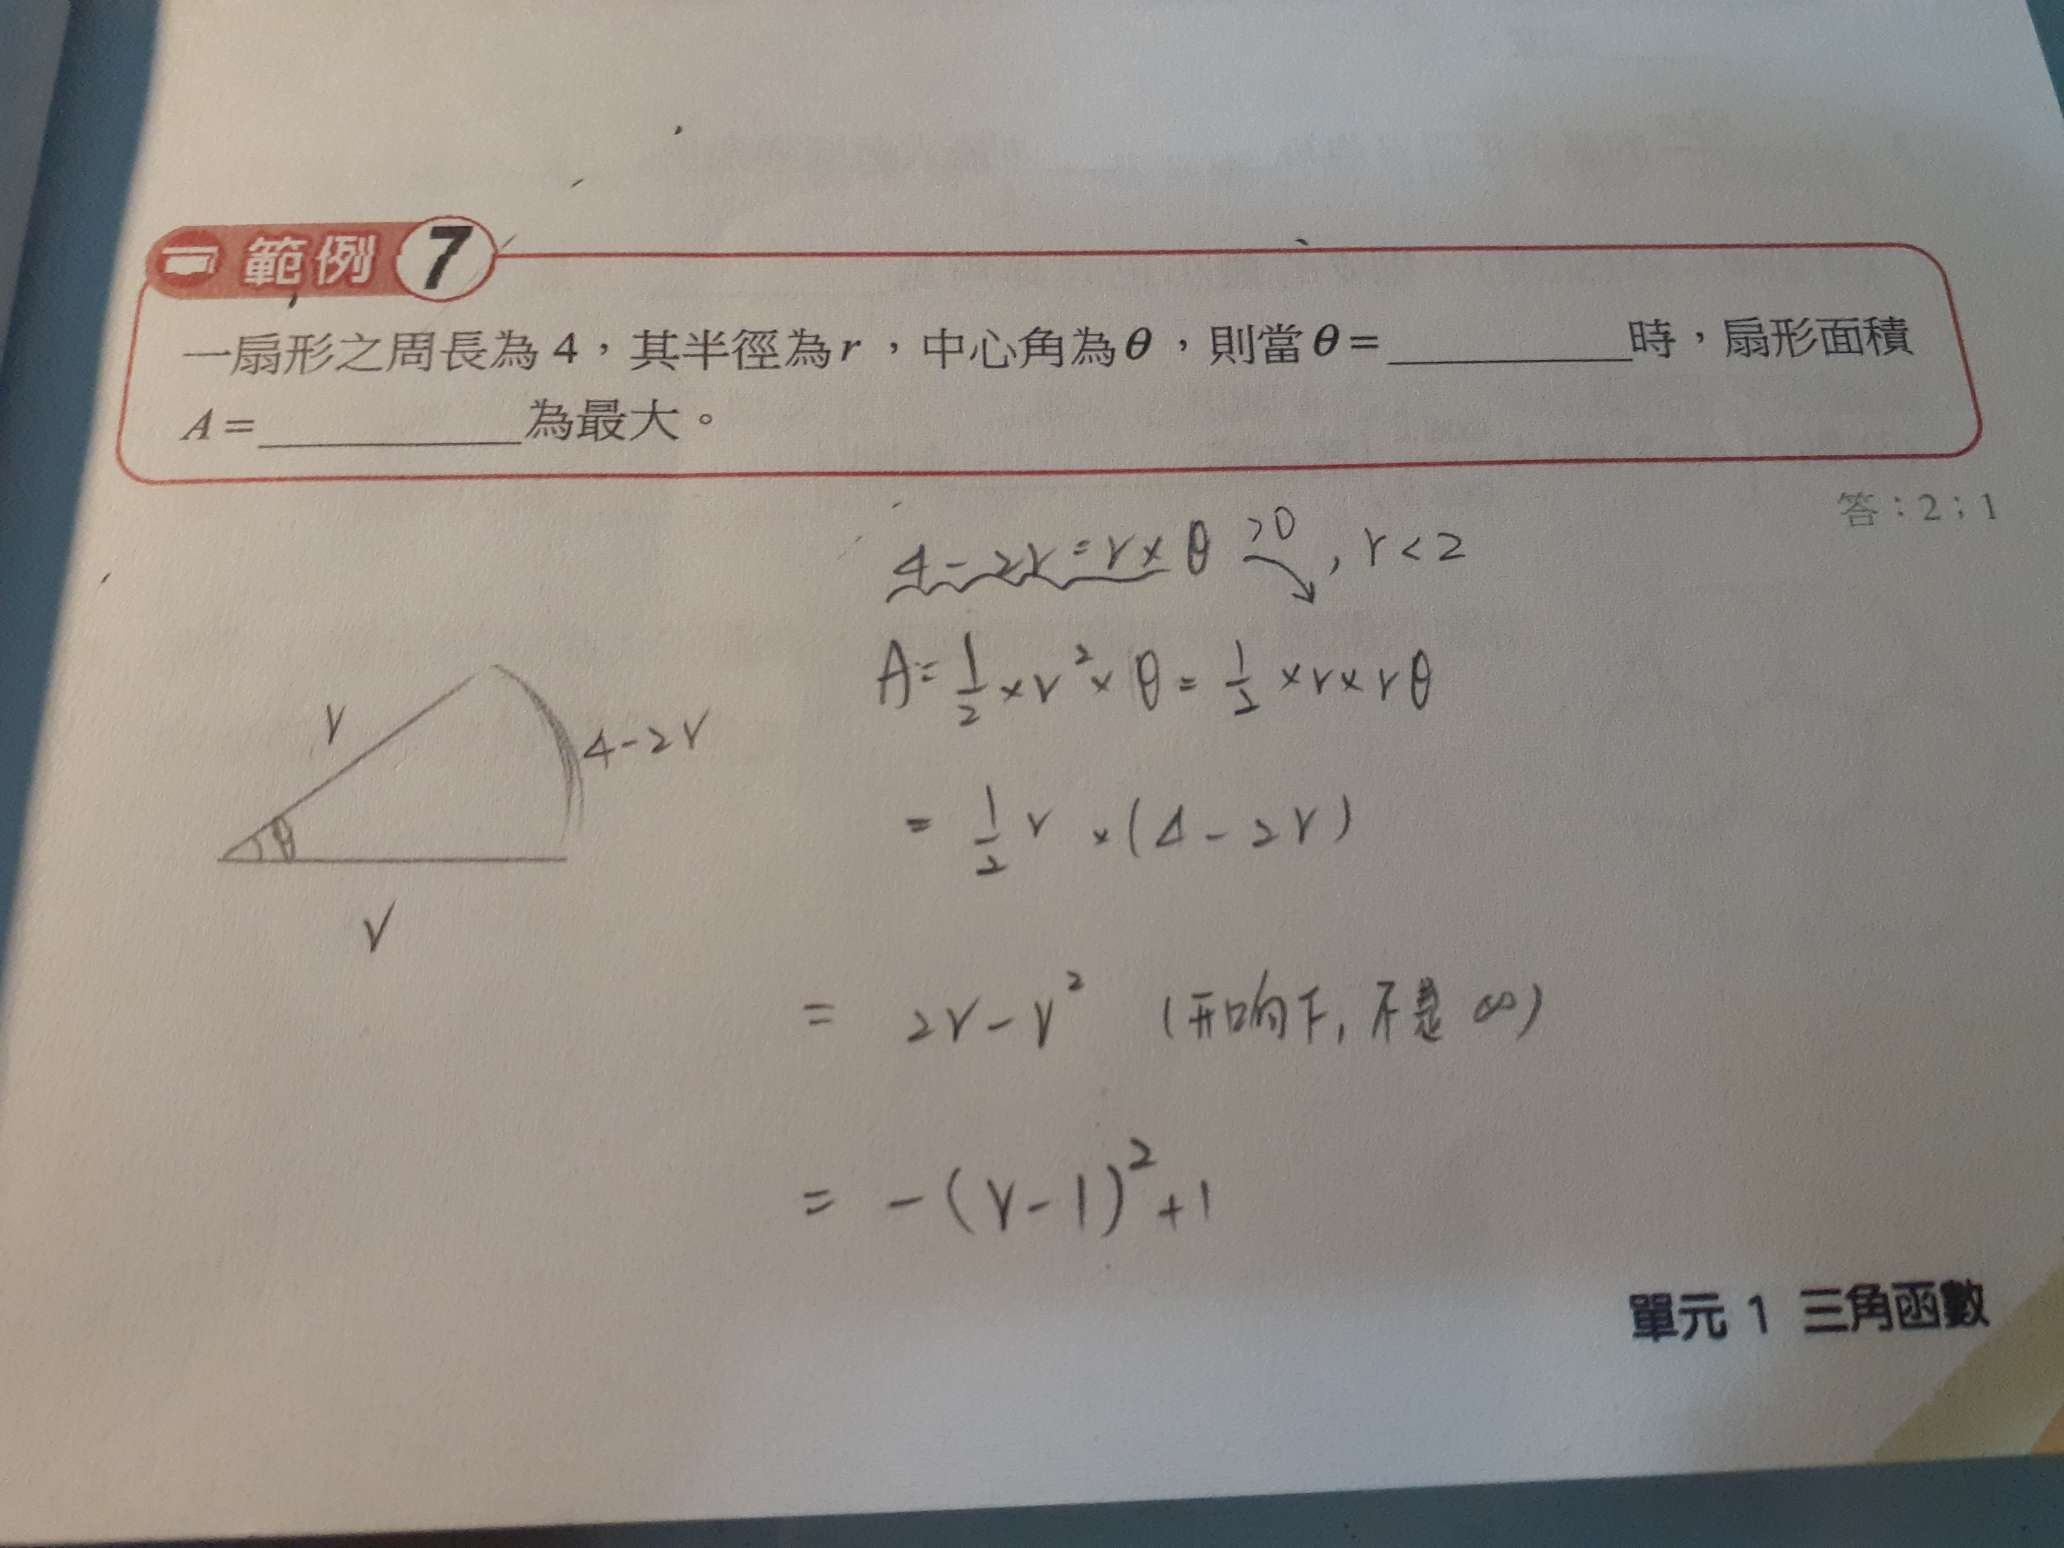 範例 7
一扇形之周長為 4，其半徑為 r，中心角為 θ，則當 θ = ________ 時，扇形面積
A = ________ 為最大。
答：2；1
4 - 2r = r × θ > 0 , r < 2
A = 1/2 × r² × θ = 1/2 × r × rθ
r
4 - 2r
θ
r
= 1/2 r × (4 - 2r)
= 2r - r² (开口向下, 不是 ∞)
= -(r - 1)² + 1
單元 1 三角函數